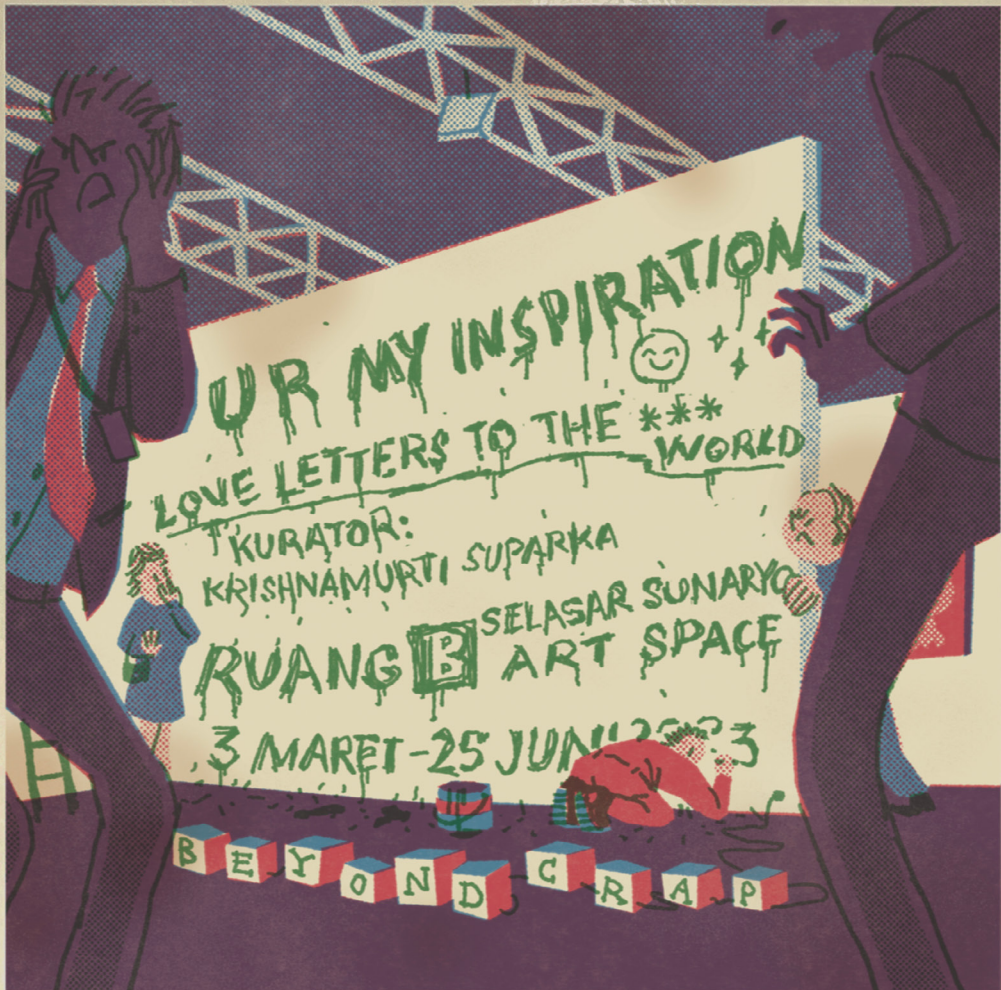 UR MY INSPIRATION
LOVE LETTERS TO THE ***
WORLD
KURATOR:
KRISHNAMURTI SUPARKA
RUANG B SELASAR SUNARYO
ART SPACE
3 MARET-25 JUNI
BEYOND CRAP